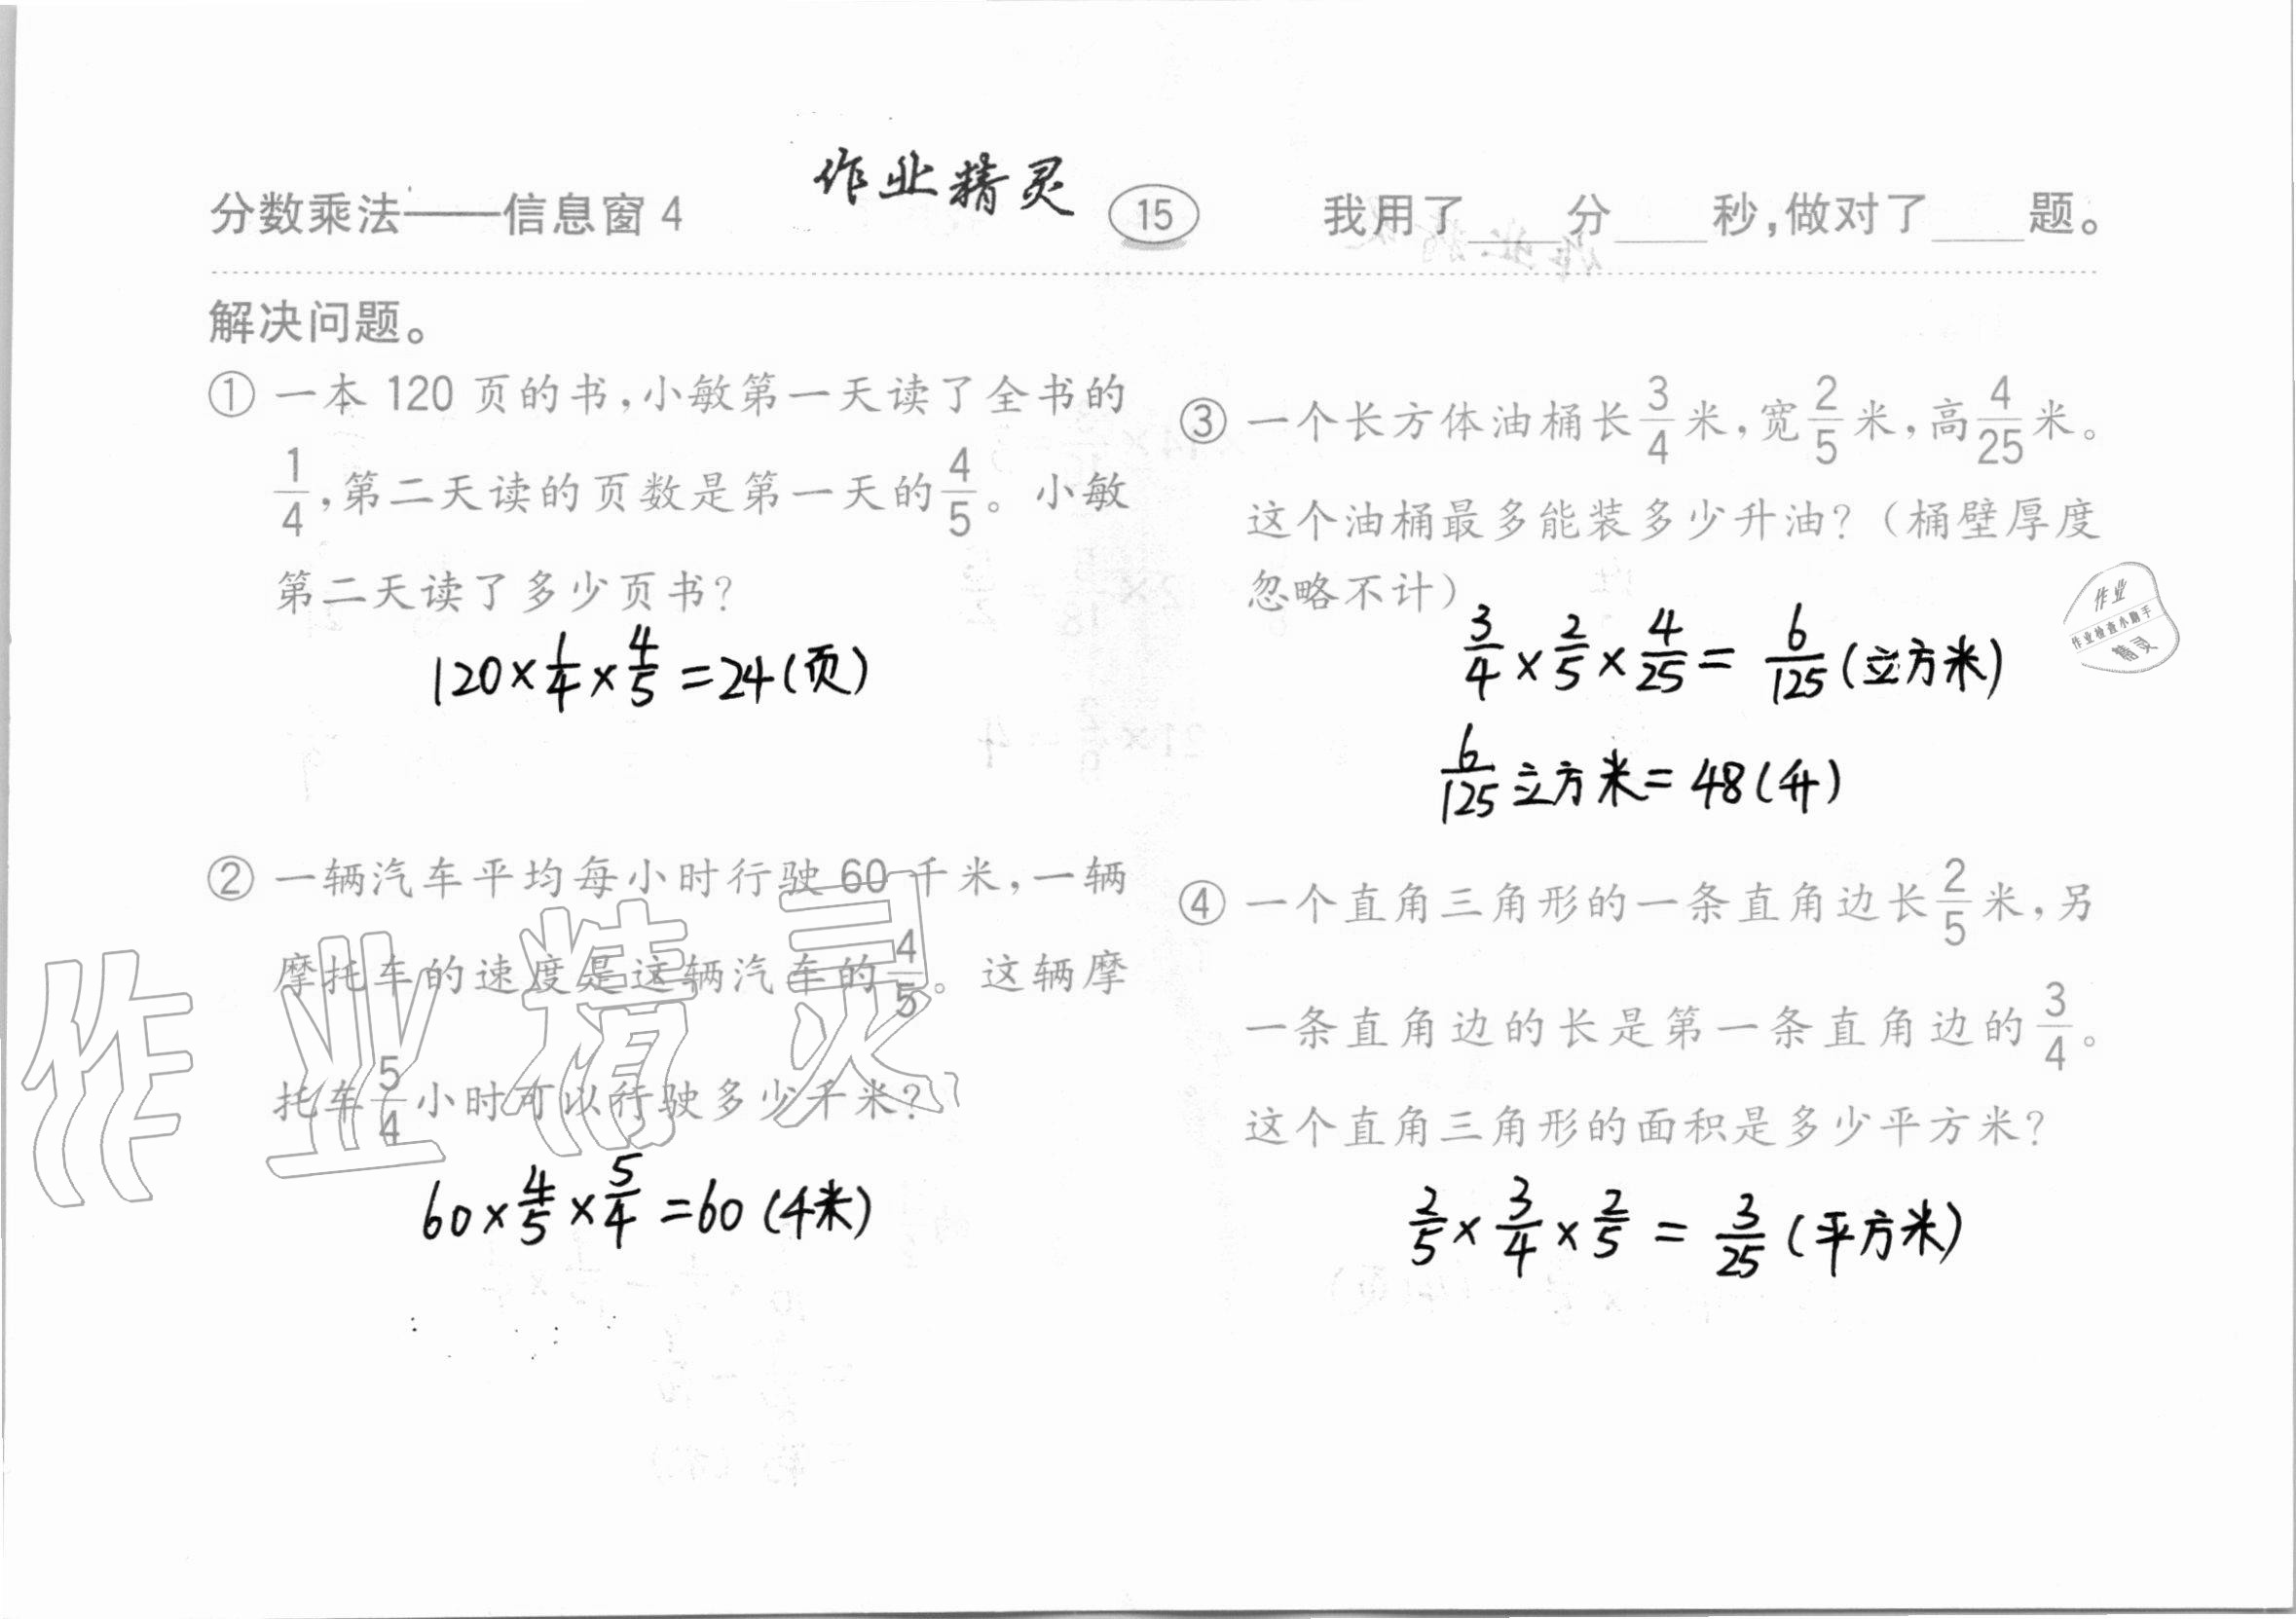 作业精灵
分数乘法——信息窗4 15 我用了____分____秒,做对了____题。
解决问题。
① 一本 120 页的书,小敏第一天读了全书的
1/4,第二天读的页数是第一天的4/5。小敏
第二天读了多少页书?
120×1/4×4/5=24(页)
② 一辆汽车平均每小时行驶 60 千米,一辆
摩托车的速度是这辆汽车的4/5。这辆摩
托车5/4小时可以行驶多少千米?
60×4/5×5/4=60(千米)
③ 一个长方体油桶长3/4米,宽2/5米,高4/25米。
这个油桶最多能装多少升油?(桶壁厚度
忽略不计)
3/4×2/5×4/25=6/125(立方米)
6/125立方米=48(升)
④ 一个直角三角形的一条直角边长2/5米,另
一条直角边的长是第一条直角边的3/4。
这个直角三角形的面积是多少平方米?
2/5×3/4×2/5=3/25(平方米)
作业精灵
作业
作业检查小助手
精灵